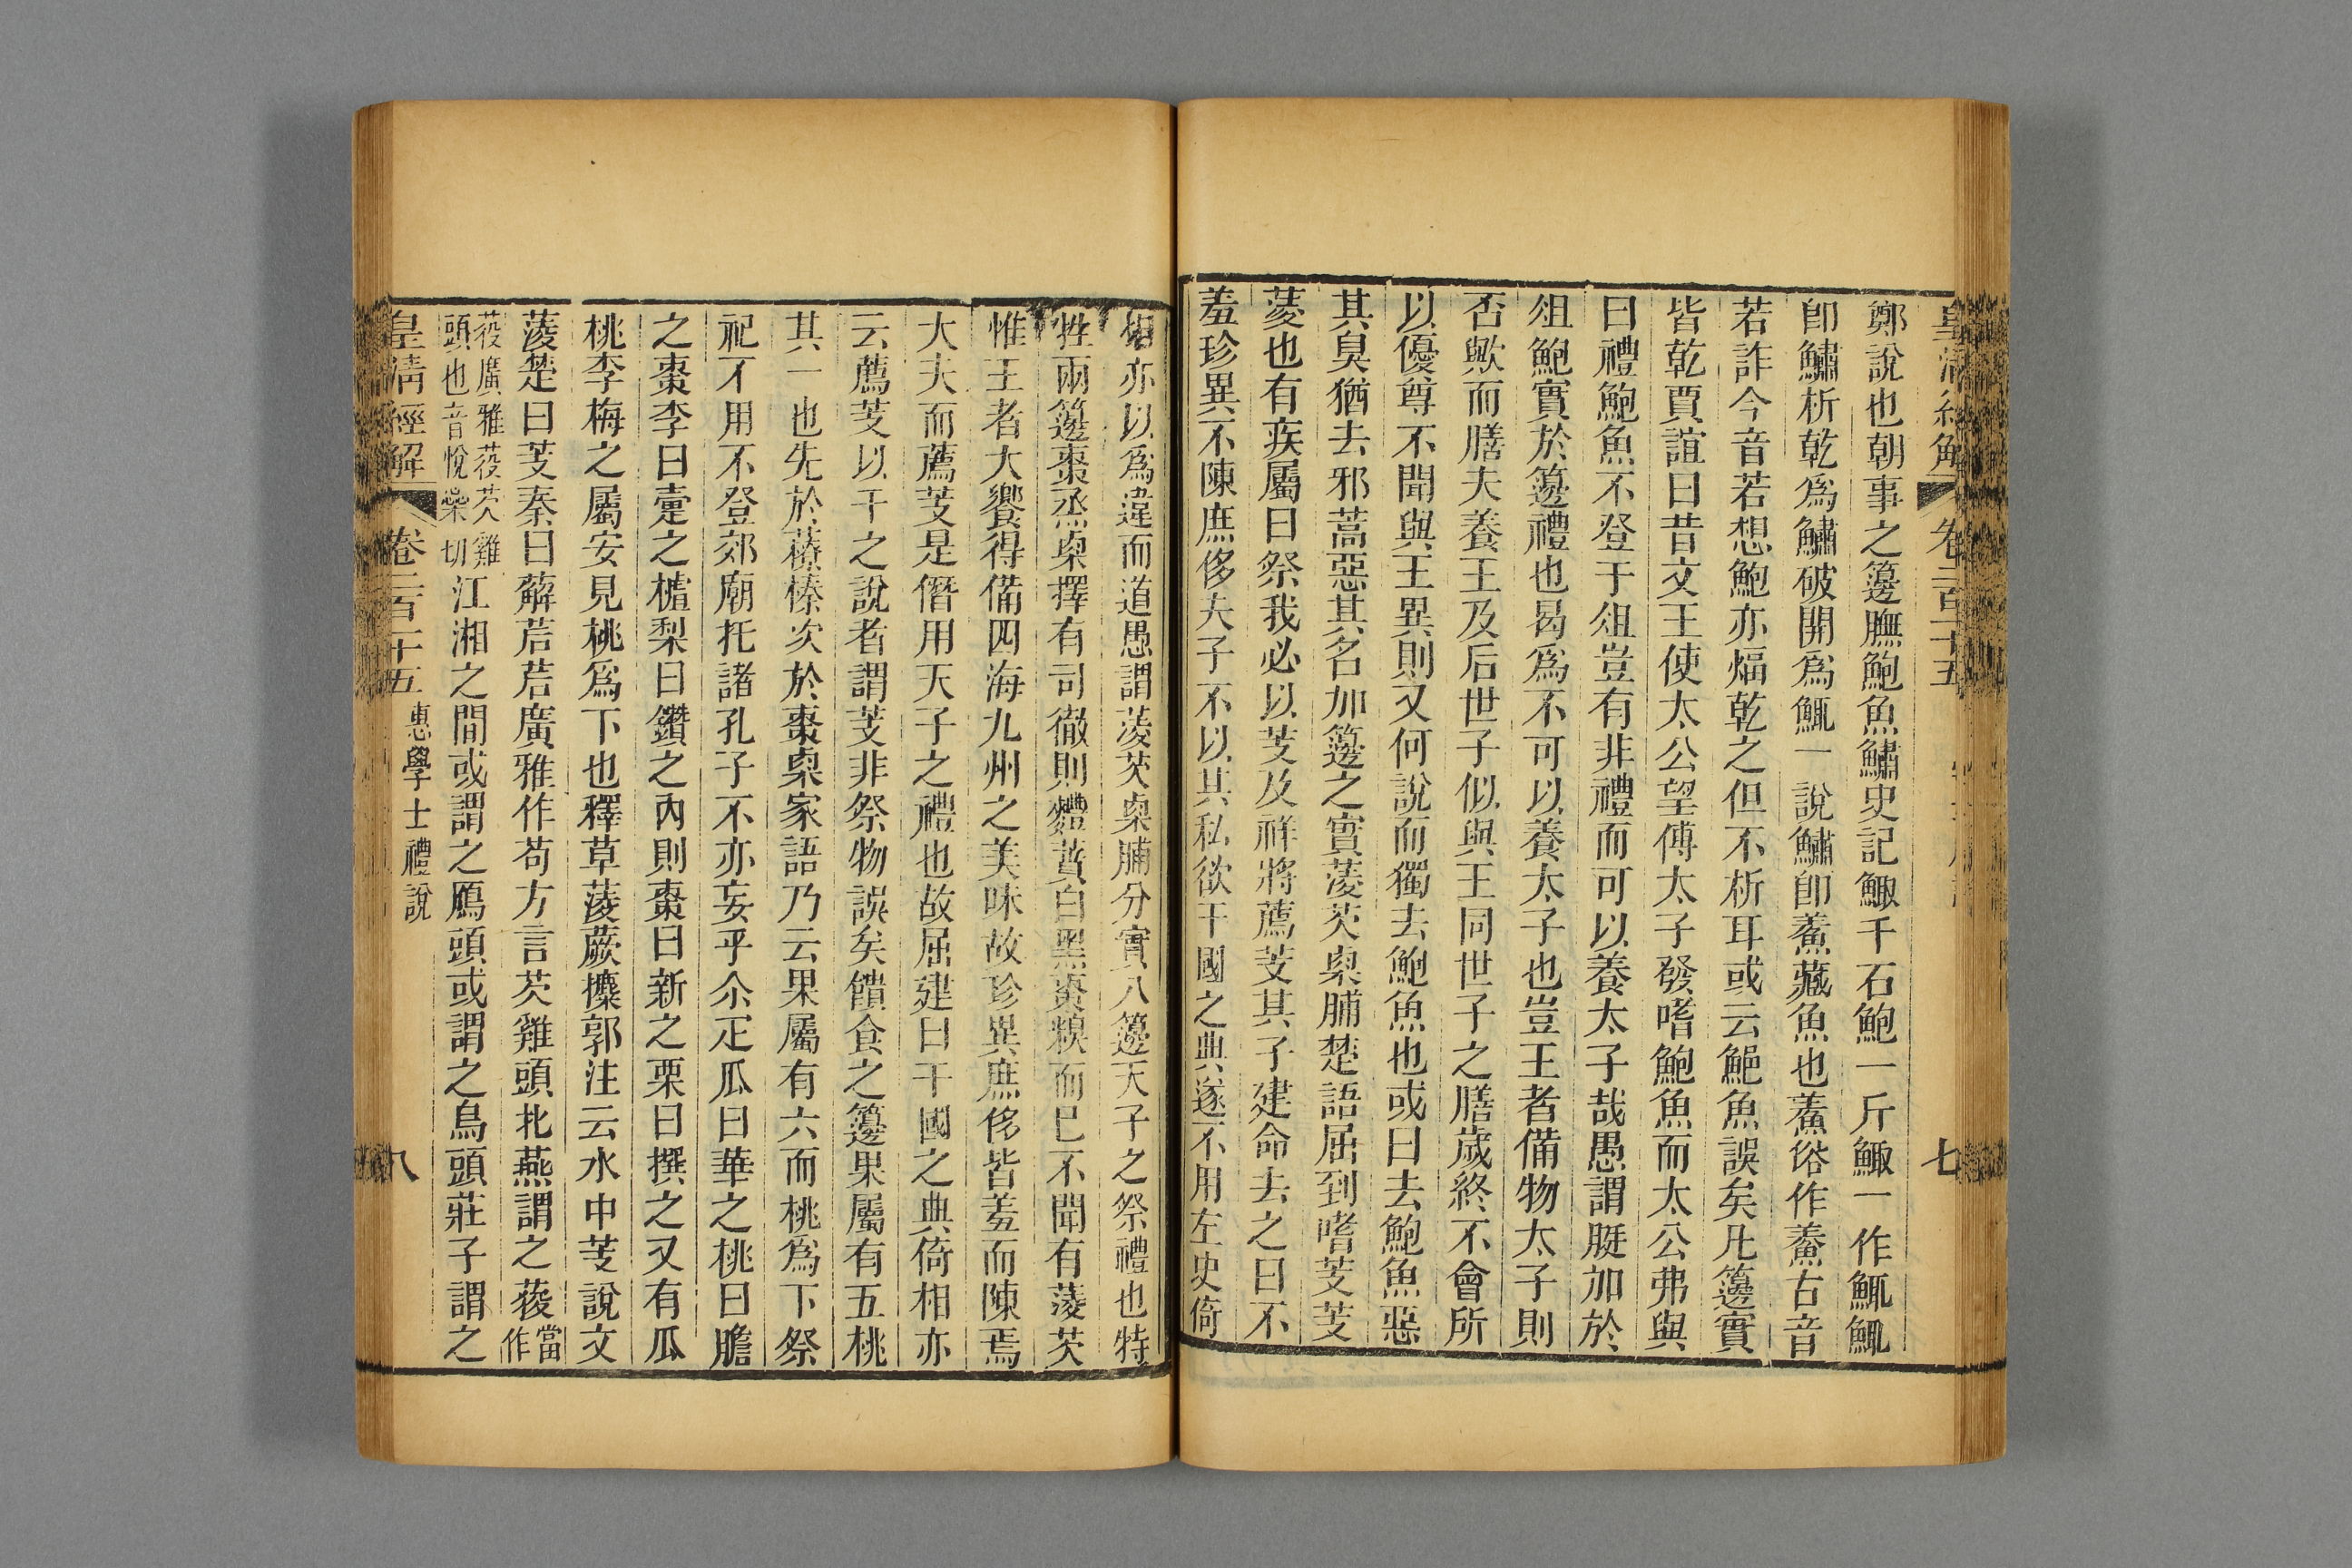 皇清經解 卷二百十五 七
鄭說也朝事之籩膴鮑魚鱐史記鯫千石鮑一斤鯫一作鮿鮿
卽鱐析乾爲鱐破開爲鮿一說鱐卽鮝藏魚也鮝俗作鯗古音
若詐今音若想鮑亦煏乾之但不析耳或云鮠魚誤矣凡籩實
皆乾賈誼曰昔文王使太公望傅太子發嗜鮑魚而太公弗與
曰禮鮑魚不登于俎豈有非禮而可以養太子哉愚謂脡加於
俎鮑實於籩禮也曷爲不可以養太子也豈王者備物太子則
否歟而膳夫養王及后世子似與王同世子之膳歲終不會所
以優尊不聞與王異則又何說而獨去鮑魚也或曰去鮑魚惡
其臭猶去邪蒿惡其名加籩之實蔆芡㮚脯楚語屈到嗜芰芰
蔆也有疾屬曰祭我必以芰及祥將薦芰其子建命去之曰不
羞珍異不陳庶侈夫子不以其私欲干國之典遂不用左史倚
相亦以爲違而道愚謂蔆芡㮚脯分實八籩天子之祭禮也特
牲兩籩棗烝㮚擇有司徹則麷蕡白黑糗而已不聞有蔆芡
惟王者大饗得備四海九州之美味故珍異庶侈皆羞而陳焉
大夫而薦芰是僭用天子之禮也故屈建曰干國之典倚相亦
云薦芰以干之說者謂芰非祭物誤矣饋食之籩果屬有五桃
其一也先於䕩榛次於棗㮚家語乃云果屬有六而桃爲下祭
祀不用不登郊廟托諸孔子不亦妄乎尒疋瓜曰華之桃曰膽
之棗李曰疐之樝梨曰鑽之內則棗曰新之栗曰撰之又有瓜
桃李梅之屬安見桃爲下也釋草蔆蕨攗郭注云水中芰說文
蔆楚曰芰秦曰薢茩茩廣雅作苟方言芡雞頭北燕謂之葰當作
䓈廣雅䓈芡雞頭也音悅榮切江湘之間或謂之鴈頭或謂之烏頭莊子謂之
皇清經解 卷二百十五 惠學士禮說 八